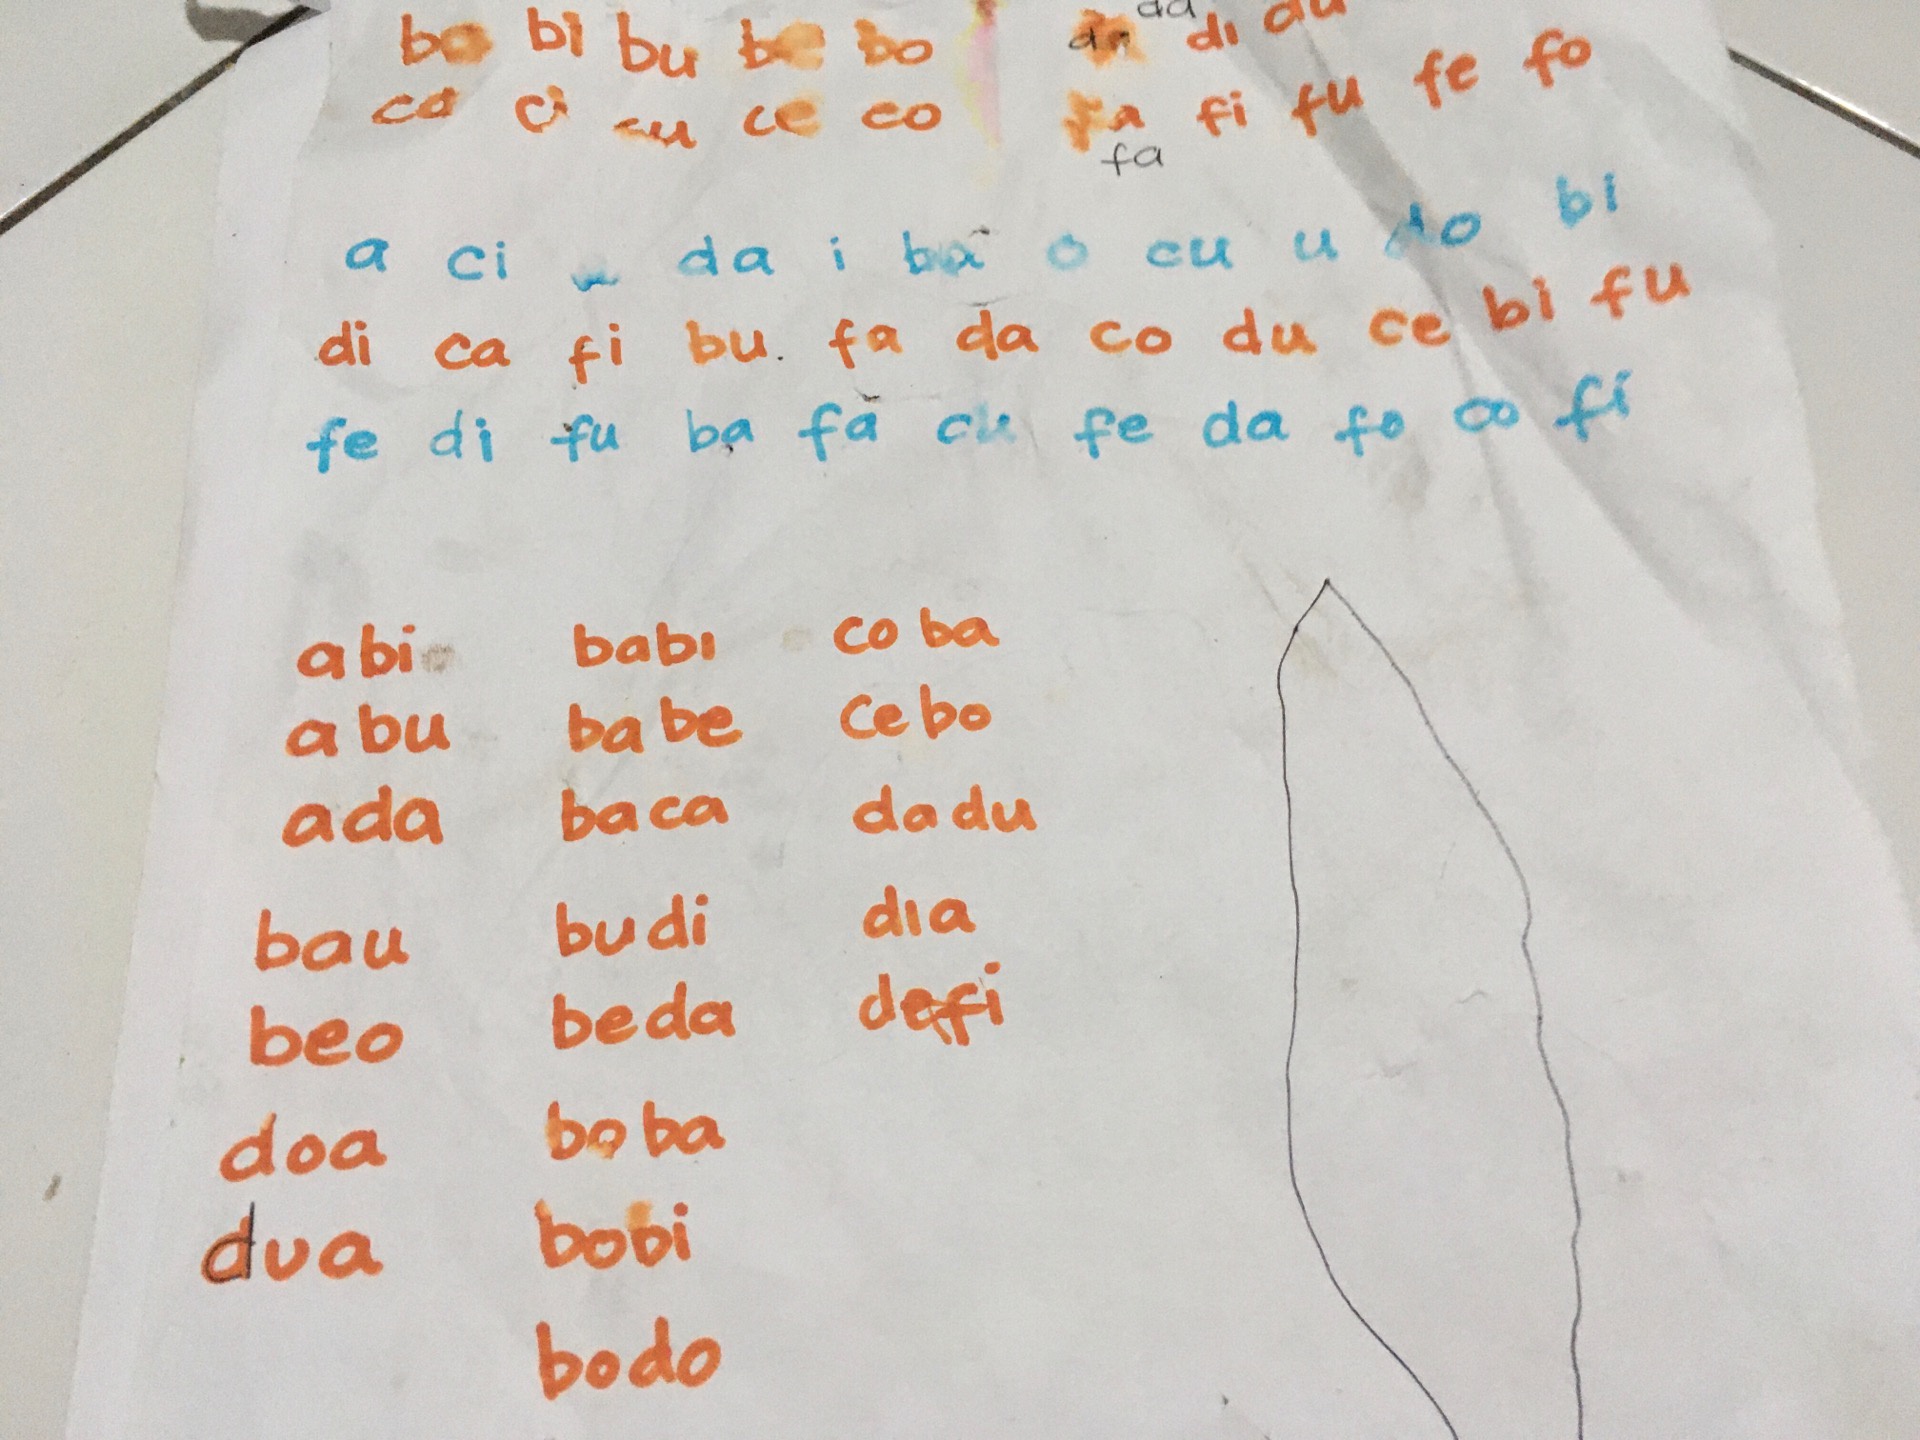 ba bi bu be bo da da di du
ca ci cu ce co fa fi fu fe fo
fa
a ci da i ba o cu u do bi
di ca fi bu. fa da co du ce bi fu
fe di fu ba fa cu fe da fo co fi
abi babi coba
abu babe cebo
ada baca dadu
bau budi dia
beo beda defi
doa boba
dua bobi
bodo